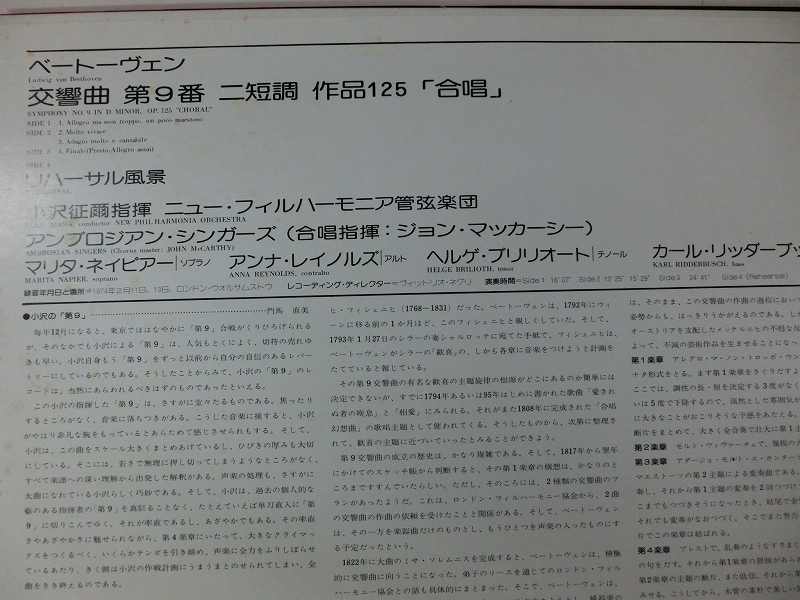 ベートーヴェン
Ludwig van Beethoven
交響曲 第9番 ニ短調 作品125「合唱」
SYMPHONY NO. 9 IN D MINOR, OP. 125 "CHORAL"
SIDE 1 1. Allegro ma non troppo, un poco maestoso
SIDE 2 2. Molto vivace
3. Adagio molto e cantabile
SIDE 3 4. Finale (Presto-Allegro assai)
SIDE 4
リハーサル風景
小沢征爾指揮 ニュー・フィルハーモニア管弦楽団
conductor NEW PHILHARMONIA ORCHESTRA
アンブロジアン・シンガーズ(合唱指揮:ジョン・マッカーシー)
AMBROSIAN SINGERS (Chorus master: JOHN McCARTHY)
マリタ・ネイピアー|ソプラノ アンナ・レイノルズ|アルト ヘルゲ・ブリリオート|テノール カール・リッダーブッ
MARITA NAPIER, soprano ANNA REYNOLDS, contralto HELGE BRILIOTH, tenor KARL RIDDERBUSCH, bass
録音年月日と場所=1974年2月11日, 13日, ロンドン・ウォルサムストウ レコーディング・ディレクター=ヴィットリオ・ネグリ 演奏時間=Side 1
●小沢の「第9」 門馬 直美
毎年12月になると、東京でははなやかに「第9」合戦がくりひろげられる
が、そのなかでも小沢による「第9」は、人気もとくによく、切符の売れゆ
きも早い。小沢自身も「第9」をずっと以前から自分の自信のあるレパー
トリーにしているのでもある。そうしたことからみて、小沢の「第9」のレ
コードは、当然にあらわれるべきはずのものであったといえる。
この小沢の指揮した「第9」は、さすがに堂々たるものである。焦ったり
するところがなく、音楽に落ちつきがある。こうした音楽に接すると、小沢
がやはり非凡な腕をもっているとあらためて感じさせられもする。そして、
小沢は、この曲をスケール大きくまとめあげているし、ひびきの厚みも大切
にしている。そこには、若さで無理に押し切ってしまうようなところがなく、
すべて楽譜への深い理解から出発した解釈がある。声楽の処理も、さすがに
大曲になれている小沢らしく巧妙である。そして、小沢は、過去の個人的な
癖のある指揮者の「第9」を真似ることなく、たとえていえば単刀直入に「第
9」に切りこんでゆく。それが率直であるし、あざやかでもある。その率直
さやあざやかさに魅せられながら、第4楽章にいたって、大きなクライマッ
クスをつくるべく、いくらかテンポを引き締め、声楽に全力をふりしぼらせ
ているあたり、きく側は小沢の作戦計画にうまうまとのせられてしまい、全
曲をきき終えるのである。
ヒ・フィシェニヒ(1768−1831)だった。ベートーヴェンは、1792年にウィ
ーンに移る前の1か月ほど、このフィシェニヒと親しくしていた。そして、
1793年1月27日のシラーの妻シャルロッテに宛てた手紙で、フィシェニヒは、
ベートーヴェンがシラーの「歓喜」の、しかも各章に音楽をつけようと計画を
たてていると報じている。
その第9交響曲の有名な歓喜の主題旋律の根源がどこにあるのか簡単には
決定できないが、すでに1794年あるいは95年はじめに書かれた歌曲「愛され
ぬ者の嘆息」と「相愛」にみられる。それがまた1808年に完成された「合唱
幻想曲」の歌唱主題として使われてくる。そうしたものから、次第に整理さ
れて、歓喜の主題に近づいていったとみることができよう。
第9交響曲の成立の歴史は、かなり複雑である。そして、1817年から翌年
にかけてのスケッチ帳から判断すると、その第1楽章の構想は、かなりのと
ころまですすんでいたらしい。ただし、そのころには、2種類の交響曲のプ
ランがあったようだ。これは、ロンドン・フィルハーモニー協会から、2曲
の交響曲の作曲の依頼を受けたことと関係がある。そして、ベートーヴェン
は、その一方を楽器曲だけのものとし、もうひとつを声楽の入ったものにす
る予定だったという。
1822年に大曲のミサ・ソレムニスを完成すると、ベートーヴェンは、積極
的に交響曲に向うことになった。弟子のリースを通じてのロンドン・フィル
ハーモニー協会との話も具体的にまとまった。そこで、ベートーヴェンは、
は、そのまま、この交響曲の作曲の過程において
姿勢からも、はっきりうかがえるのである。しか
オーストリアを支配したメッテルニヒの
よって、不滅の芸術作品を生ませることになっ
第1楽章 アレグロ・マ・ノン・トロッポ・ウン
ナタ形式をとる。まず第1楽章をきくだけで
ここでは、調性の長・短を決定する3度がなく
いは5度で下降するので、漠然とした雰囲気が
に大きなことがおこりそうな予感をあたえる。
第2楽章 モルト・ヴィヴァーチェで、
第3楽章 アダージョ・モルト・エ・カンターヒ
マエストーソの第2主題による変奏曲である。
第4楽章 プレストで、